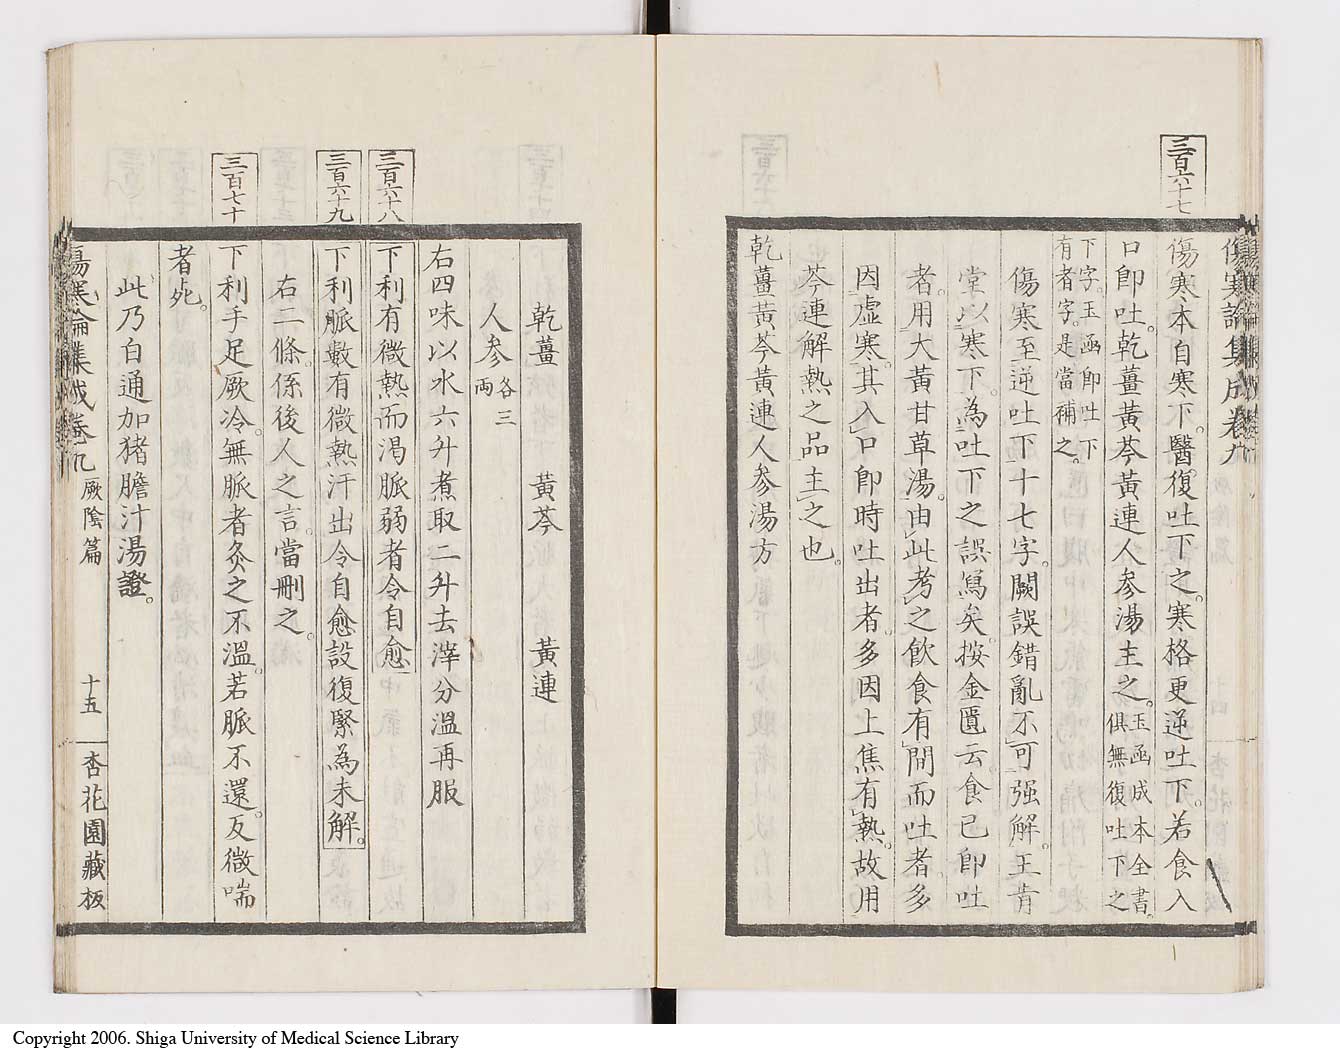 傷寒論集成卷九
三百六十七
傷寒本自寒下。醫復吐下之。寒格更逆吐下。若食入
口卽吐。乾薑黃芩黃連人参湯主之。玉函成本全書。俱無復吐下之
下字。玉函卽吐下有者字。是當補之。
傷寒至逆吐下十七字。闕誤錯亂不可强解。王肯
堂以寒下。為吐下之誤寫矣。按金匱云。食已卽吐
者。用大黃甘草湯。由此考之飮食有間而吐者。多
因虛寒。其入口卽時吐出者。多因上焦有熱。故用
芩連解熱之品主之也。
乾薑黃芩黃連人参湯方
乾薑 黃芩 黃連
人参各三兩
右四味以水六升煮取二升去滓分溫再服
三百六十八
下利有微熱而渴脈弱者令自愈
三百六十九
下利脈數有微熱汗出令自愈設復緊為未解。
右二條。係後人之言。當刪之。
三百七十
下利手足厥冷。無脈者灸之不溫。若脈不還。反微喘
者死。
此乃白通加猪膽汁湯證。
傷寒論集成卷九 厥陰篇 十五 杏花園藏板
Copyright 2006. Shiga University of Medical Science Library